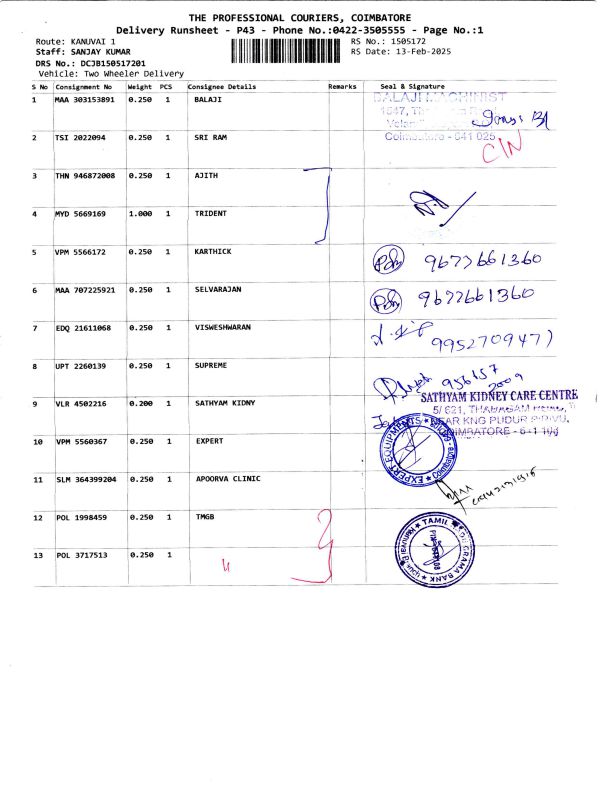 THE PROFESSIONAL COURIERS, COIMBATORE
Delivery Runsheet - P43 - Phone No.:0422-3505555 - Page No.:1
Route: KANUVAI 1 RS No.: 1505172
Staff: SANJAY KUMAR RS Date: 13-Feb-2025
DRS No.: DCJB150517201
Vehicle: Two Wheeler Delivery
S No Consignment No Weight PCS Consignee Details Remarks Seal & Signature
1 MAA 303153891 0.250 1 BALAJI
BALAJI MACHINIST
1647,
Coimbatore - 641 025
2 TSI 2022094 0.250 1 SRI RAM C/N
3 THN 946872008 0.250 1 AJITH
4 MYD 5669169 1.000 1 TRIDENT
5 VPM 5566172 0.250 1 KARTHICK 9677661360
6 MAA 707225921 0.250 1 SELVARAJAN 9677661360
7 EDQ 21611068 0.250 1 VISWESHWARAN 9952709477
8 UPT 2260139 0.250 1 SUPREME 956657
2009
9 VLR 4502216 0.200 1 SATHYAM KIDNY
SATHYAM KIDNEY CARE CENTRE
5/621, THADAGAM
NEAR KNG PUDUR PIRIVU,
COIMBATORE - 641 108
10 VPM 5560367 0.250 1 EXPERT
EXPERT EQUIPMENTS
Coimbatore
11 SLM 364399204 0.250 1 APOORVA CLINIC
12 POL 1998459 0.250 1 TMGB
13 POL 3717513 0.250 1 "
TAMIL NADU GRAMA BANK